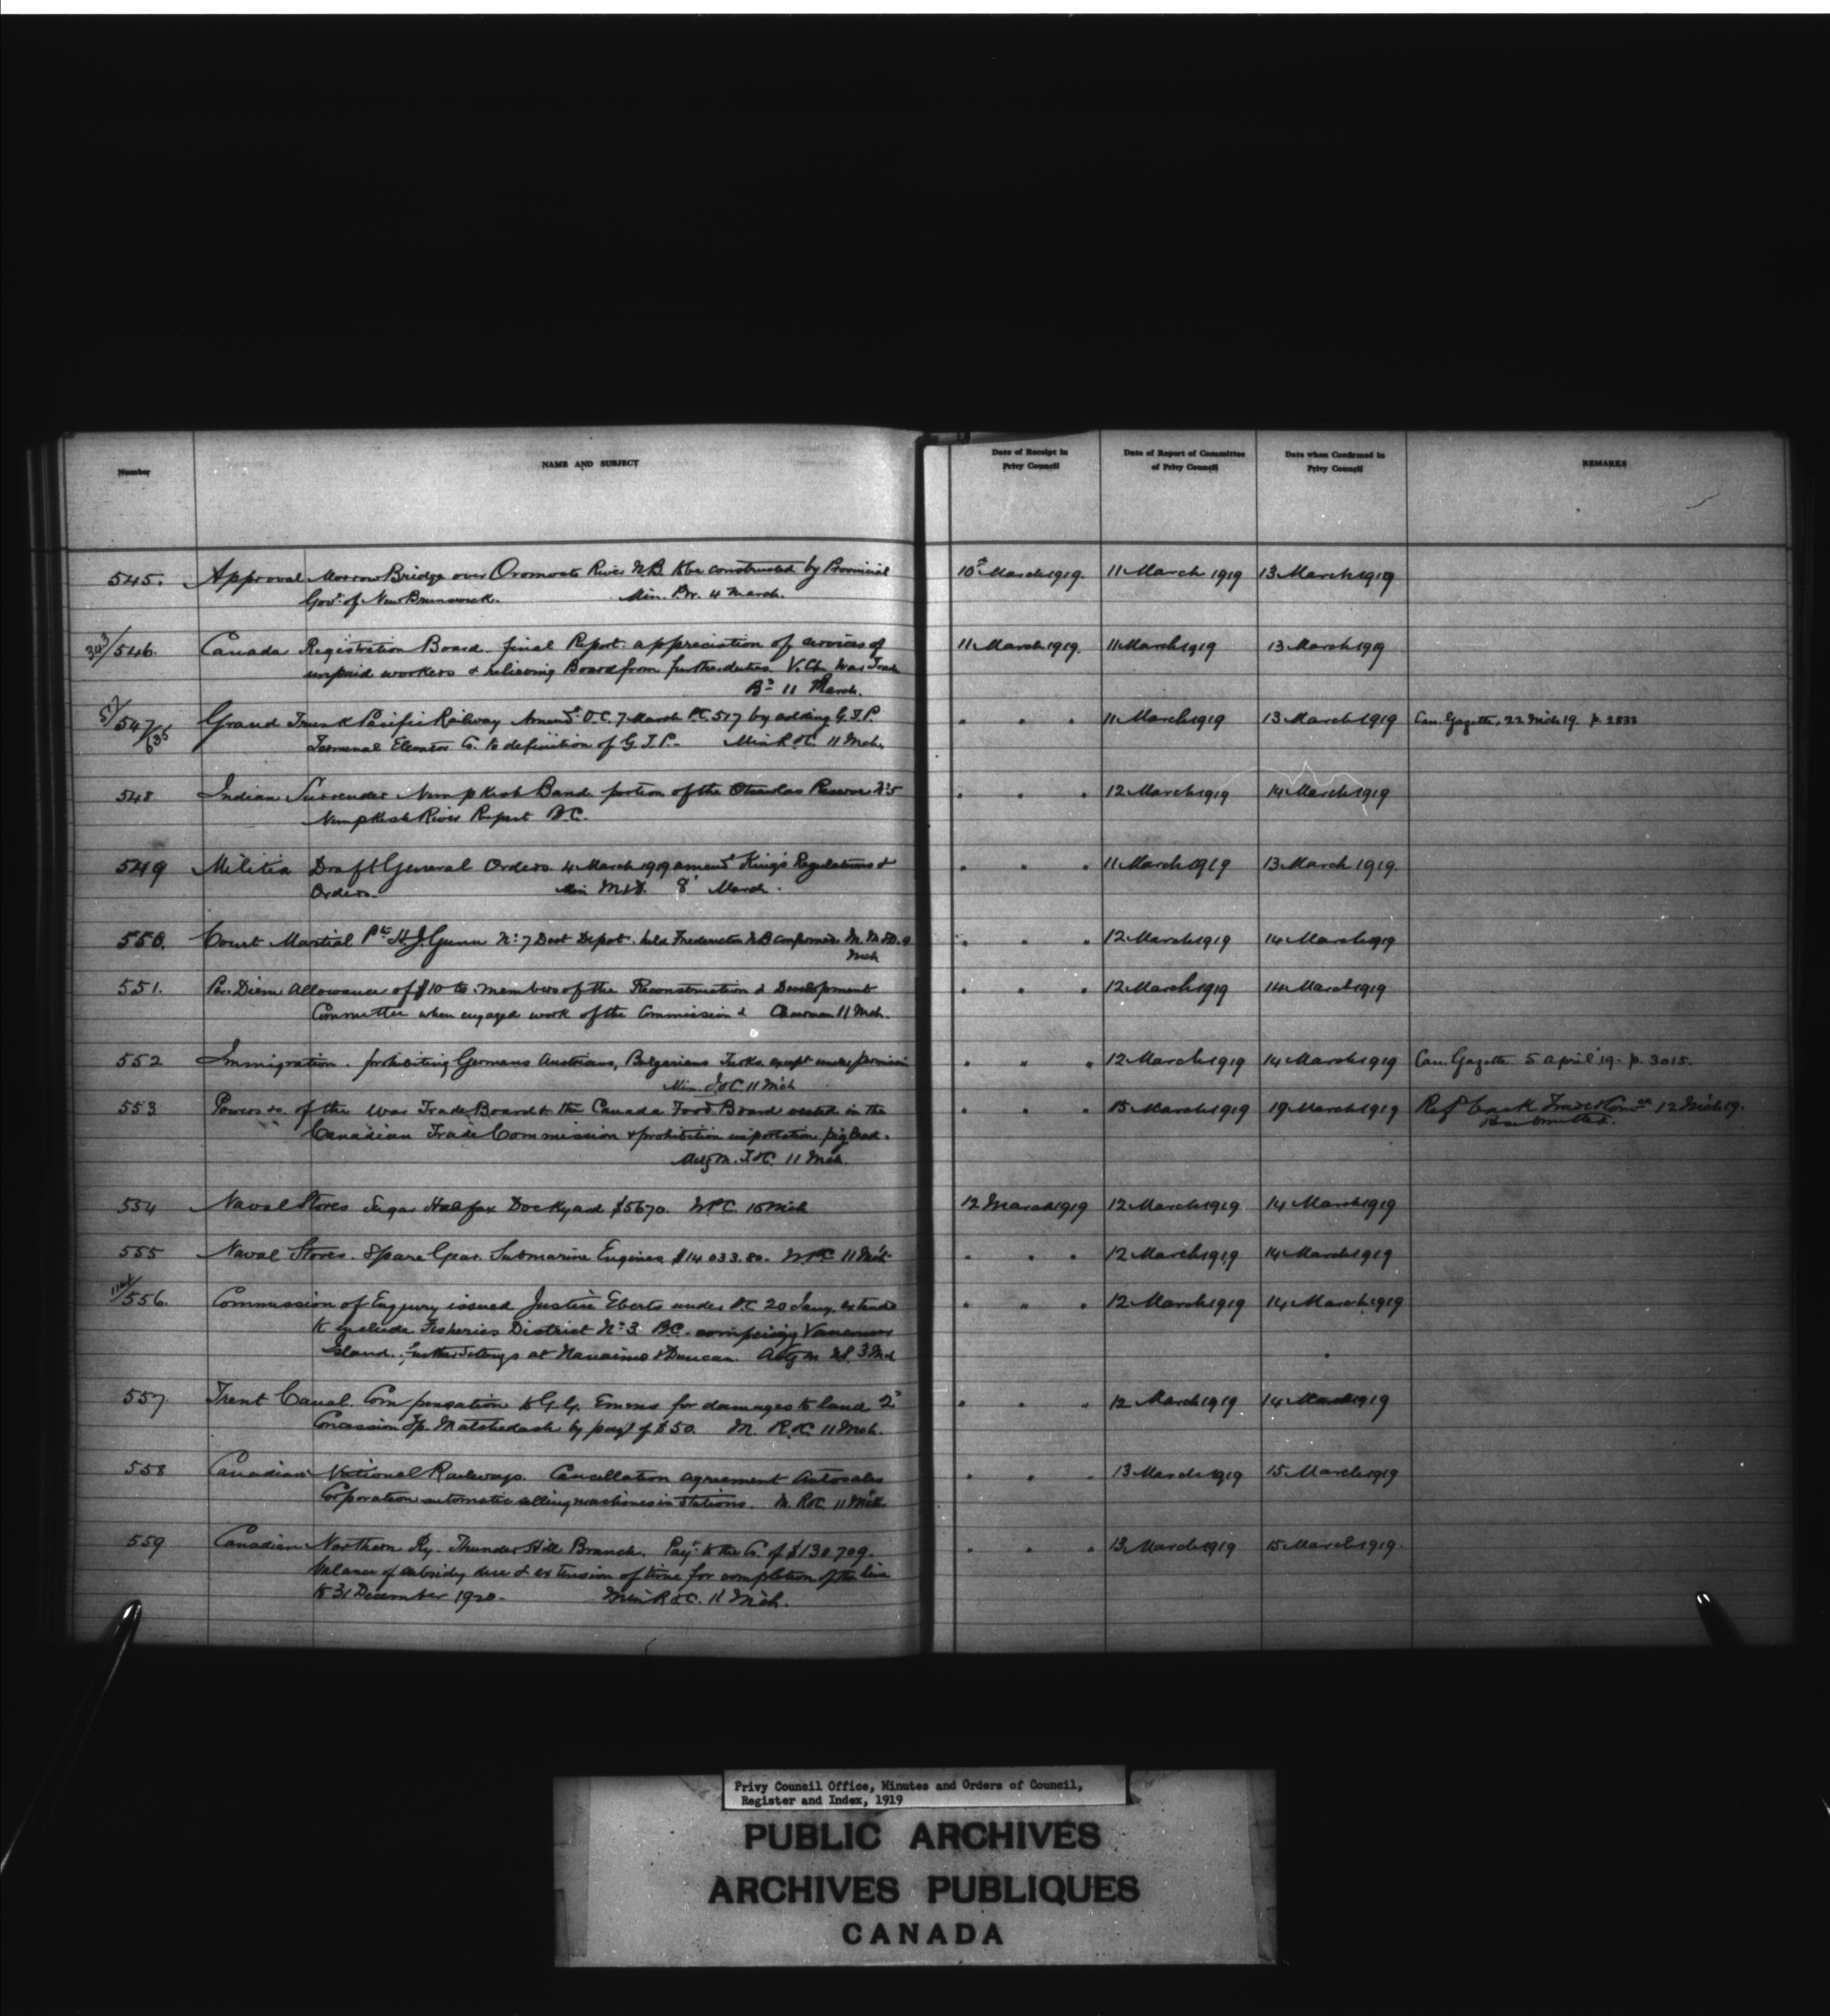 Number
NAME AND SUBJECT
Date of Receipt in
Privy Council
Date of Report of Committee
of Privy Council
Date when Confirmed in
Privy Council
REMARKS
545. Approval Morrow Bridge over Oromocto River N.B. to be constructed by Provincial 10th March 1919. 11 March 1919 13 March 1919
Govt. of New Brunswick. Min. P.W. 4 March.
546. Canada Registration Board. final Report: appreciation of services of 11 March 1919. 11 March 1919 13 March 1919
unpaid workers & relieving Board from further duties V. Ch. War Trade
Bd 11 March.
547/635 Grand Trunk Pacific Railway Amendt O.C. 7 March P.C. 517 by adding G.T.P. " " " 11 March 1919 13 March 1919 Can. Gazette, 22 Mch 19. p. 2833
Terminal Elevator Co. to definition of G.T.P. - Min R & C. 11 Mch.
548 Indian Surrender Nimpkish Band portion of the Reserve No 5 " " " 12 March 1919 14 March 1919
Nimpkish River Rupert B.C.
549 Militia Draft General Orders 4 March 1919 amendt King's Regulations & " " " 11 March 1919 13 March 1919.
Orders. Min M & D. 8 March.
550. Court Martial Pte H.J. Gunn No 7 Dist Depot. held Fredericton N.B. confirmed. M. M & D. " " " 12 March 1919 14 March 1919
Mch
551. Per Diem Allowance of $10 to members of the Reconstruction & Development " " " 12 March 1919 14 March 1919
Committee when engaged work of the Commission & Chairman 11 Mch.
552 Immigration. prohibiting Germans Austrians, Bulgarians Turks. except under permission " " " 12 March 1919 14 March 1919 Can. Gazette 5 April 19. p. 3015.
Min. I & C. 11 Mch
553 Powers &c. of the War Trade Board & the Canada Food Board vested in the " " " 15 March 1919 19 March 1919 Ref back Trade & Comce 12 Mch 19.
Resubmitted.
Canadian Trade Commission & prohibition importation pig lead.
Actg M. T & C. 11 Mch.
554 Naval Stores Sugar Halifax Dockyard $5670. W.P.C. 10 Mch 12 March 1919 12 March 1919. 14 March 1919
555 Naval Stores. Spare Gear. Submarine Engines $14033.80. W.P.C. 11 Mch " " " 12 March 1919. 14 March 1919
556. Commission of Enquiry issued Justice Eberts under P.C. 20 Jany. extended " " " 12 March 1919 14 March 1919
to include Fisheries District No 3 B.C. comprising Vancouver
Island. further sittings at Nanaimo & Duncan. Actg M 3 Mch
557. Trent Canal. Compensation to G.G. Emms for damages to land 2d " " " 12 March 1919 14 March 1919
Concession Tp. Matchedash by payt of $50. M. R & C. 11 Mch.
558 Canadian National Railways. Cancellation agreement Autosales " " " 13 March 1919 15 March 1919
Corporation automatic selling machines in stations. M. R & C. 11 Mch
559 Canadian Northern Ry. Thunder Hill Branch. Payt to the Co. of $130.709. " " " 13 March 1919 15 March 1919.
balance of subsidy due & extension of time for completion of the line
to 31 December 1920. Min R & C. 11 Mch.
Privy Council Office, Minutes and Orders of Council,
Register and Index, 1919
PUBLIC ARCHIVES
ARCHIVES PUBLIQUES
CANADA